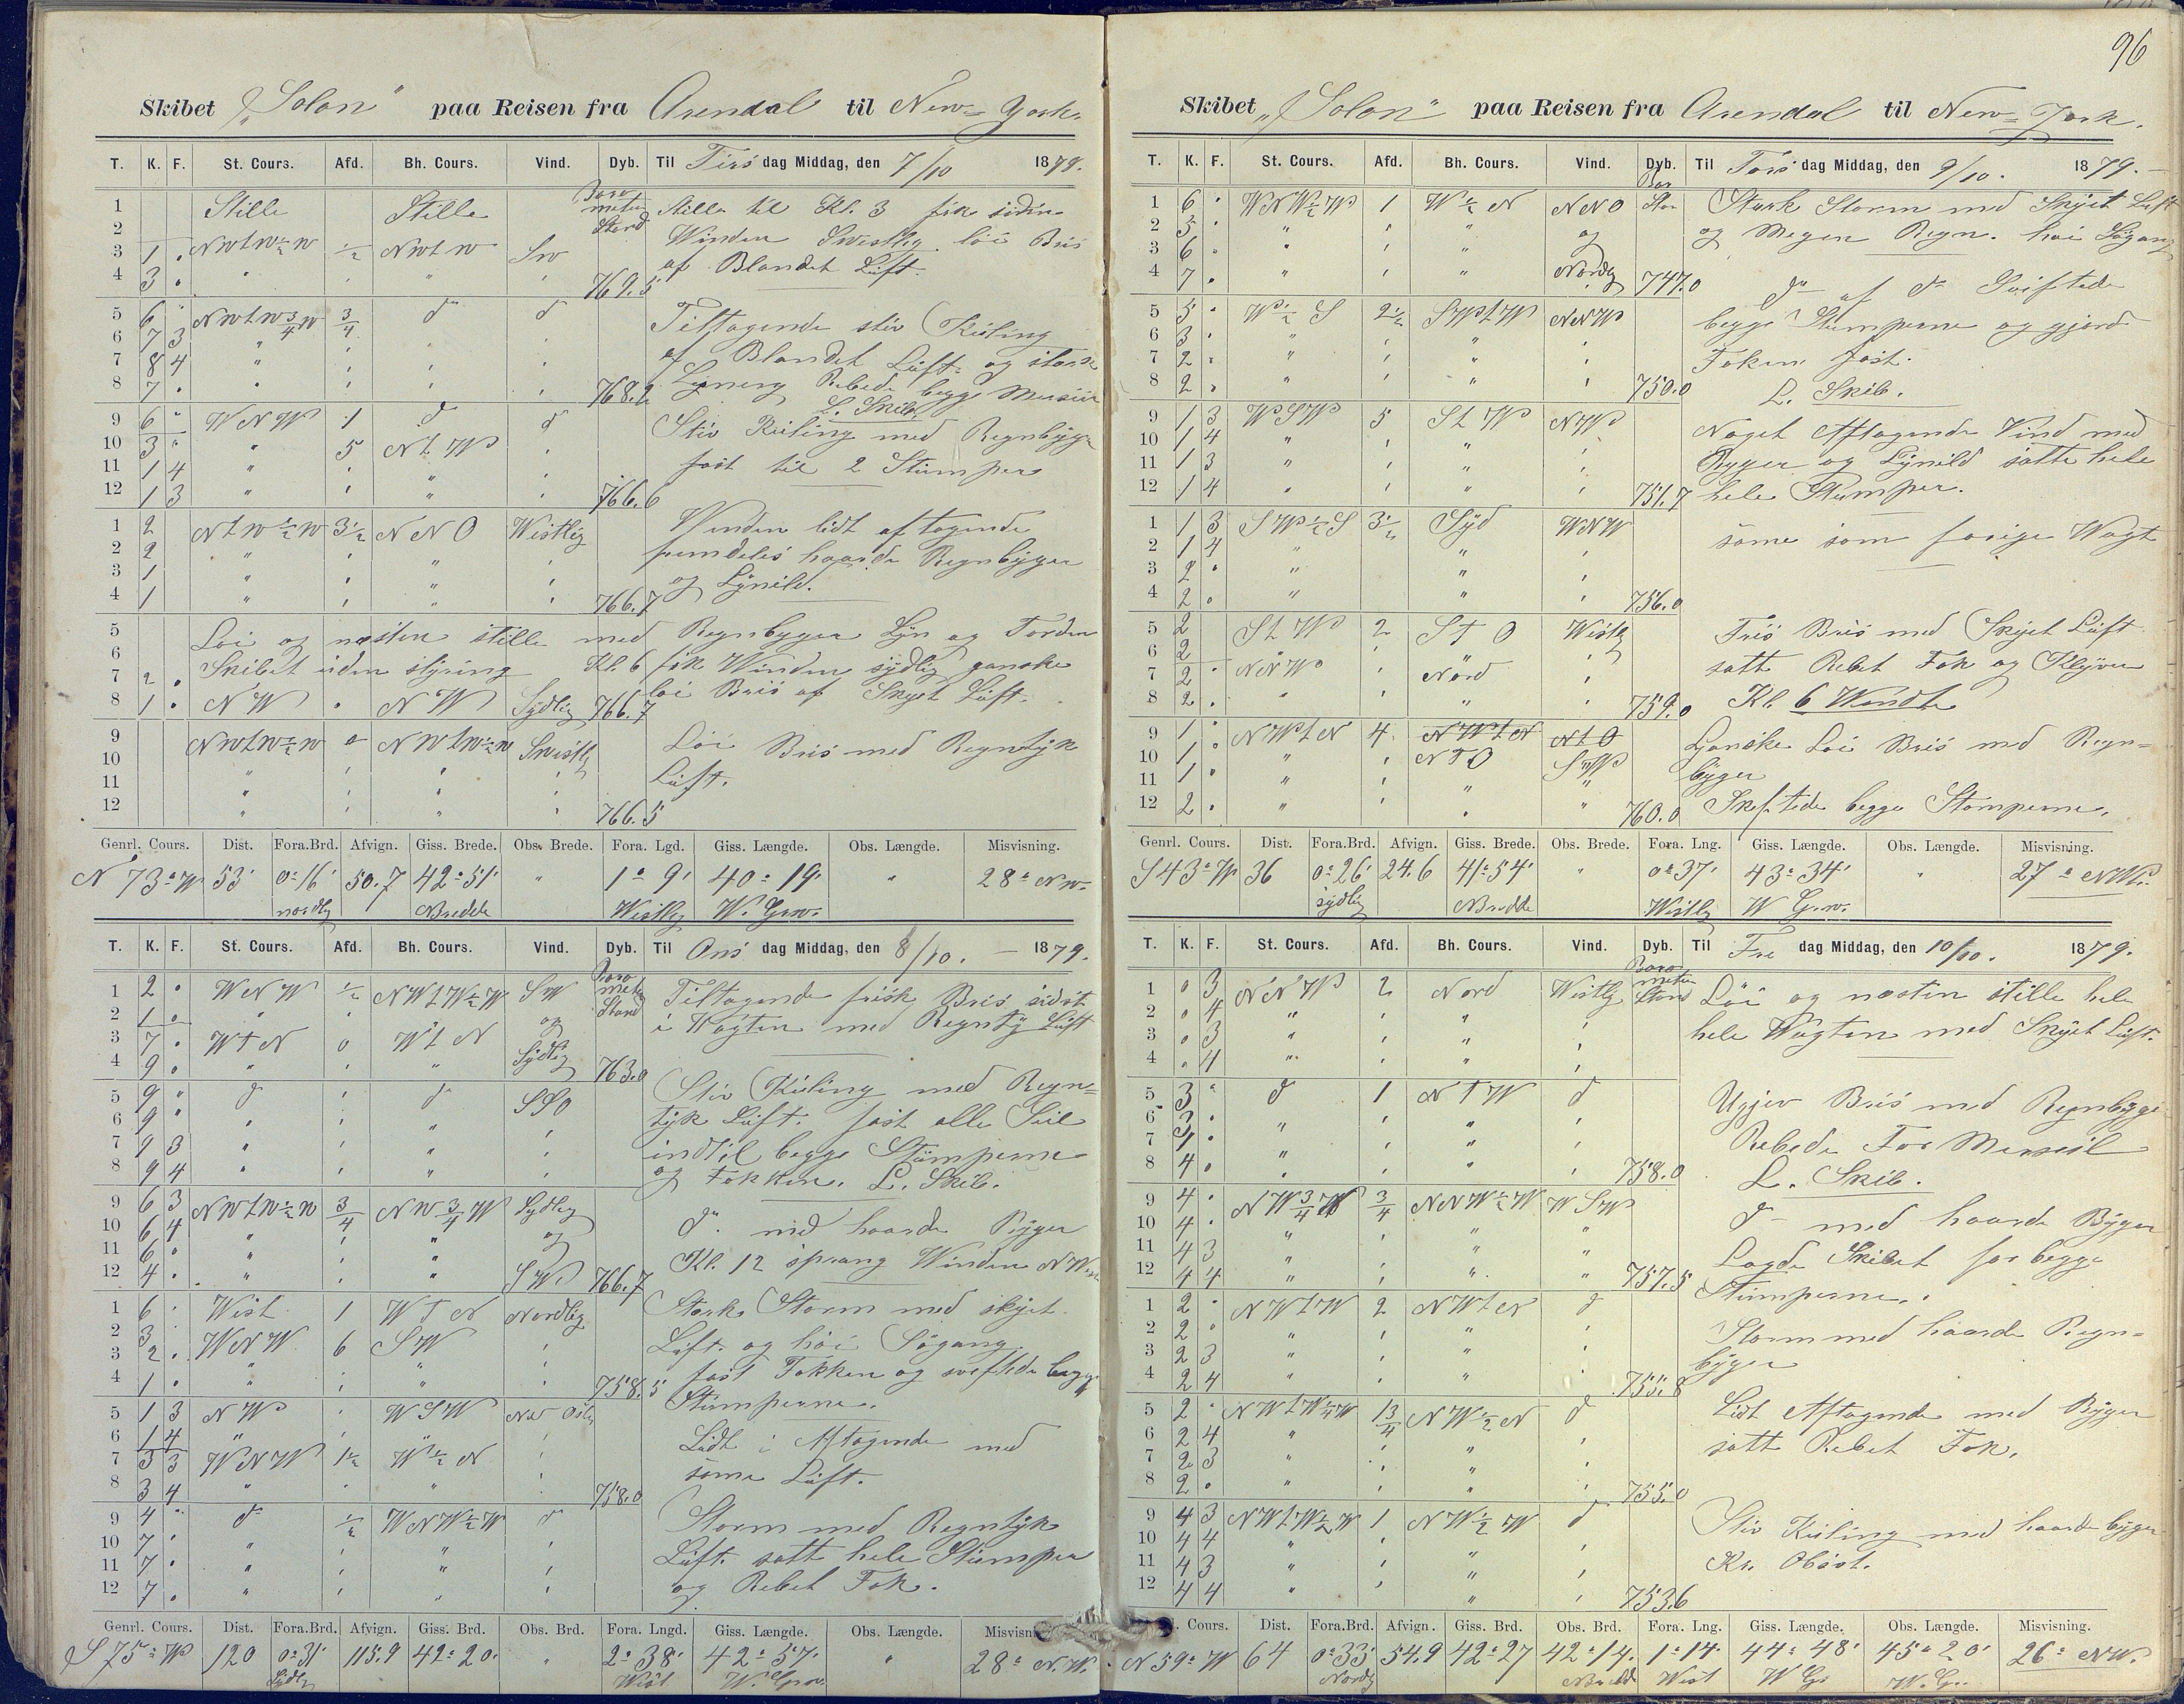 96
Skibet „Solon" paa Reisen fra Arendal til New-York.
T. K. F. St. Cours. Afd. Bh. Cours. Vind. Dyb. Til Tirs dag Middag, den 7/10 1879.
Barometer Stand
1 Stille Stille Stille til Kl. 3 fik siden
2 Winden Swestlig löi Bris
3 1 . NWtW½W ½ NWtW SW af Blandet Luft.
4 3 . " " " " 769.5
5 6 " NWtW¾W ¾ do do Tiltagende stiv Kuling
6 7 3 " " " " af Blandet Luft og stærk
7 8 4 " " " "
8 7 . " " " " 768.2 Rebede begge Mersseil
L. Skib.
9 6 " WNW 1 do do Stiv Kuling med Regnbyger
10 3 " " 5 NtW " fast til 2 Stumper
11 1 4 " " " "
12 1 3 " " " " 766.6
1 2 NtW½W 3½ NNO Westlig Winden lidt aftagende
2 2 " " " " fremdeles haarde Regnbyger
3 1 " " " " og Lynild.
4 1 " " " " 766.7
5 Löi og næsten stille med Regnbyger Lyn og Torden
6 Skibet uden styring Kl. 6 fik Winden sydlig ganske
7 2 . löi Bris af Skyet Luft.
8 1 . NW . NW Sydlig 766.7
9 NWtW½W o NWtW½W Swestlig Löi Bris med Regntyk
10 " " " " Luft.
11 " " " "
12 " " " " 766.5
Genrl. Cours. Dist. Fora.Brd. Afvign. Giss. Brede. Obs. Brede. Fora. Lgd. Giss. Længde. Obs. Længde. Misvisning.
N 73° W 53' 0° 16' nordlig 50.7 42° 51' Bredde " 1° 9' Westlig 40° 19' W. Grw. " 28° NW.
T. K. F. St. Cours. Afd. Bh. Cours. Vind. Dyb. Til Ons dag Middag, den 8/10. — 1879.
Barometer Stand
1 2 . WNW ½ NWtW½W SW Tiltagende frisk Bris sidst
2 1 . " " " og i Wagten med Regntyk Luft
3 7 . WtN 0 WtN Sydlig
4 9 . " " " 763.0
5 9 " do " do SSO Stiv Kuling med Regn=
6 9 " " " " " tyk Luft. fast alle Seil
7 9 3 " " " " indtil begge Stumperne
8 9 4 " " " " og Fokken. L. Skib.
9 6 3 NWtW½W ¾ NW¾W Sydlig do med haarde Byger
10 6 4 " " " og Kl. 12 sprang Winden NW
11 6 . " " "
12 4 . " " " SW 766.7
1 6 . West 1 WTN Nordlig Stærk Storm med skyet
2 3 . WNW 6 SW " Luft. og höi Sögang.
3 2 . " " " " fast Fokken og sviftede begge
4 1 . " " " " 758.5 Stumperne.
5 1 3 NW " WSW Lidt i Aftagende med
6 1 4 " " " " same Luft.
7 3 3 WNW 1½ W½N "
8 3 4 " " " " 758.0
9 4 . do ½ WNW½W do Storm med Regntyk
10 7 . " " " " Luft. satte hele Stumper
11 7 . " " " " og Rebet Fok.
12 7 . " " " "
Genrl. Cours. Dist. Fora.Brd. Afvign. Giss. Brd. Obs. Brd. Fora. Lngd. Giss. Længde. Obs. Længde. Misvisn
S 75° W 120 0° 31' Sydlig 115.9 42° 20' " 2° 38' West 42° 57' W. Grw. " 28° N.W.
Skibet „Solon" paa Reisen fra Arendal til New=York.
T. K. F. St. Cours. Afd. Bh. Cours. Vind. Dyb. Til Tors dag Middag, den 9/10. 1879. —
1 6 . WNW½W 1 W½N NNO Stærk Storm med Skyet Luft
2 5 . " " " og og Megen Regn. höi Sögang
3 6 . " " " Nordlig
4 7 . " " " 747.0
5 5 . W½S 2½ SWtW NNW do af do Sviftede
6 3 . " " " " begge Stumperne og gjorde
7 2 . " " " " Foken fast.
8 2 . " " " " 750.0 L. Skib.
9 1 3 WSW 5 StW NW Noget Aftagende Vind med
10 1 4 " " " " Byger og Lynild satte hele
11 1 3 " " " " hele Stumper.
12 1 4 " " " " 751.7
1 1 3 SW½S 3½ Syd WNW same som forige Wagt
2 1 4 " " "
3 2 . " " "
4 2 . " " " 756.0
5 2 StW 2 StO Westlig Fris Bris med Skyet Luft
6 2 satte Rebet Fok og Klyver
7 2 . NNW " Nord " Kl. 6 Wendte
8 2 . " " " " 759.0
9 1 . NWtN 4 NWtN NtO Ganske Löi Bris med Regn=
10 1 . " " NTO SW byger
11 1 . " " " " Skiftede begge Stomperne.
12 2 . " " " " 760.0
Genrl. Cours. Dist. Fora.Brd. Afvign. Giss. Brede. Obs. Brede. Fora. Lng. Giss. Længde. Obs. Længde. Misvisning.
S 43° W 36 0° 26' sydlig 24.6 41° 54' Bredde " 0° 37' Westlig 43° 34' W Grw. " 27° NW.
T. K. F. St. Cours. Afd. Bh. Cours. Vind. Dyb. Til Fre dag Middag, den 10/10. 1879.
Barometer Stand
1 0 3 NNW 2 Nord Westlig Löi og næsten stille hele
2 . 4 " " " " hele Wagten med Skyet Luft.
3 0 3 " " " "
4 . 4 " " " "
5 3 " do 1 NTW do Ugjev Bris med Regnbyge
6 3 . " " " " Rebede For Mersseil
7 . " " " " L. Skib.
8 4 . " " " " 758.0
9 4 . NW¾W ¾ NNW½W WSW do med haarde Byger
10 4 . " " " " Lagde Skibet for begge
11 4 3 " " " " Stumperne.
12 4 4 " " " " 757.5
1 2 . NWtW 2 NWtN do Storm med haarde Regn=
2 2 . " " " " byger
3 2 3 " " " "
4 2 4 " " " " 755.8
5 2 . NWtW¼W 1¾ NW½N do Lidt Aftagende med Byger
6 2 4 " " " " satte Rebet Fok.
7 2 3 " " " "
8 2 . " " " " 755.0
9 4 3 NWtW½W 1 NW½W do Stiv Kuling med haarde byger
10 4 4 " " " " Kr. Obsvt.
11 4 3 " " " "
12 4 4 " " " " 753.6
Cours. Dist. Fora.Brd. Afvign. Giss. Brd. Obs. Brd. Fora. Lng. Giss. Længde. Obs. Længde. Misvisning.
N 59° W 64 0° 33' Nordlig 54.9 42° 27 42° 14' Bredde 1° 14' West 44° 48' W Gr 45° 20' W. Gr. 26° NW.